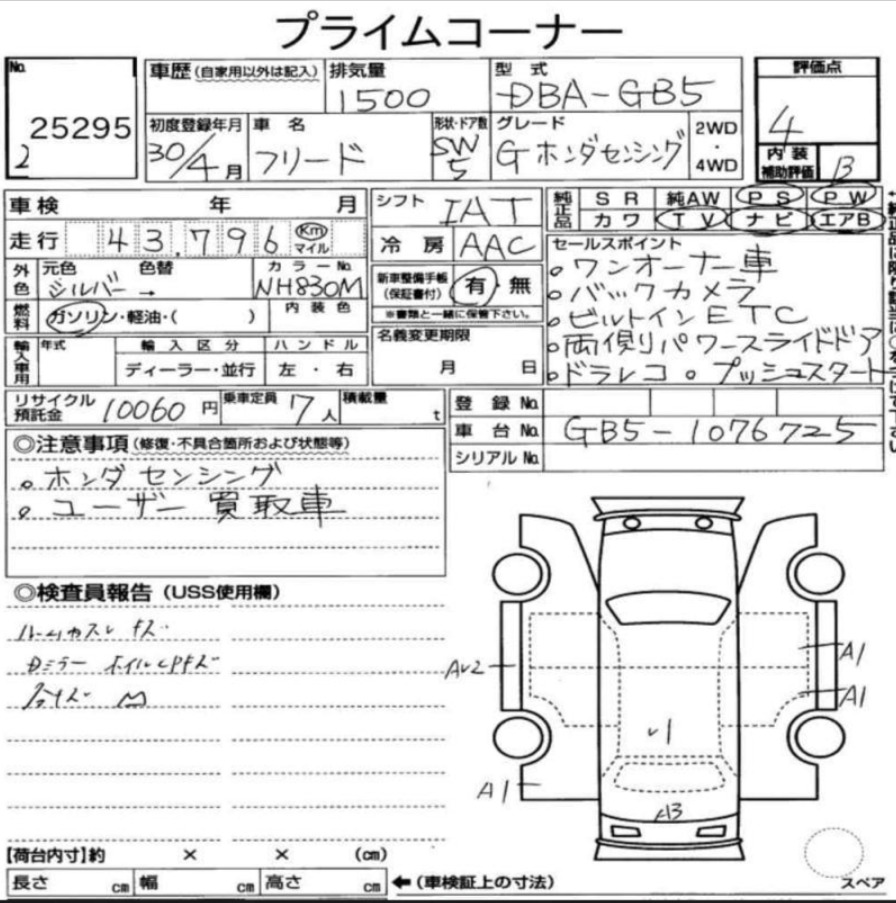 プライムコーナー
No. 25295
2
車歴(自家用以外は記入) 排気量 1500 型式 DBA-GB5
評価点 4
初度登録年月 30/4月 車名 フリード 形状・ドア数 SW 5 グレード G ホンダセンシング 2WD・4WD
内装補助評価 B
車検 年 月
走行 43.796 Km マイル
シフト IAT
冷房 AAC
純正品 SR 純AW PS PW
カワ TV ナビ エアB
外色 元色 シルバー 色替 → カラーNo. NH830M
燃料 ガソリン・軽油・( ) 内装色
新車整備手帳(保証書付) 有・無
※書類と一緒に保管下さい。
輸入車用 年式 輸入区分 ディーラー・並行 ハンドル 左・右
名義変更期限 月 日
セールスポイント
。ワンオーナー車
。バックカメラ
。ビルトインETC
。両側パワースライドドア
。ドラレコ 。プッシュスタート
リサイクル預託金 10060円 乗車定員 7人 積載量 t
登録No.
車台No. GB5-1076725
シリアルNo.
◎注意事項(修復・不具合箇所および状態等)
。ホンダセンシング
。ユーザー買取車
◎検査員報告(USS使用欄)
キズ
Dミラー ホイル
A1
A1
A1
A3
【荷台内寸】約 × × (cm)
長さ cm 幅 cm 高さ cm ←(車検証上の寸法)
スペア